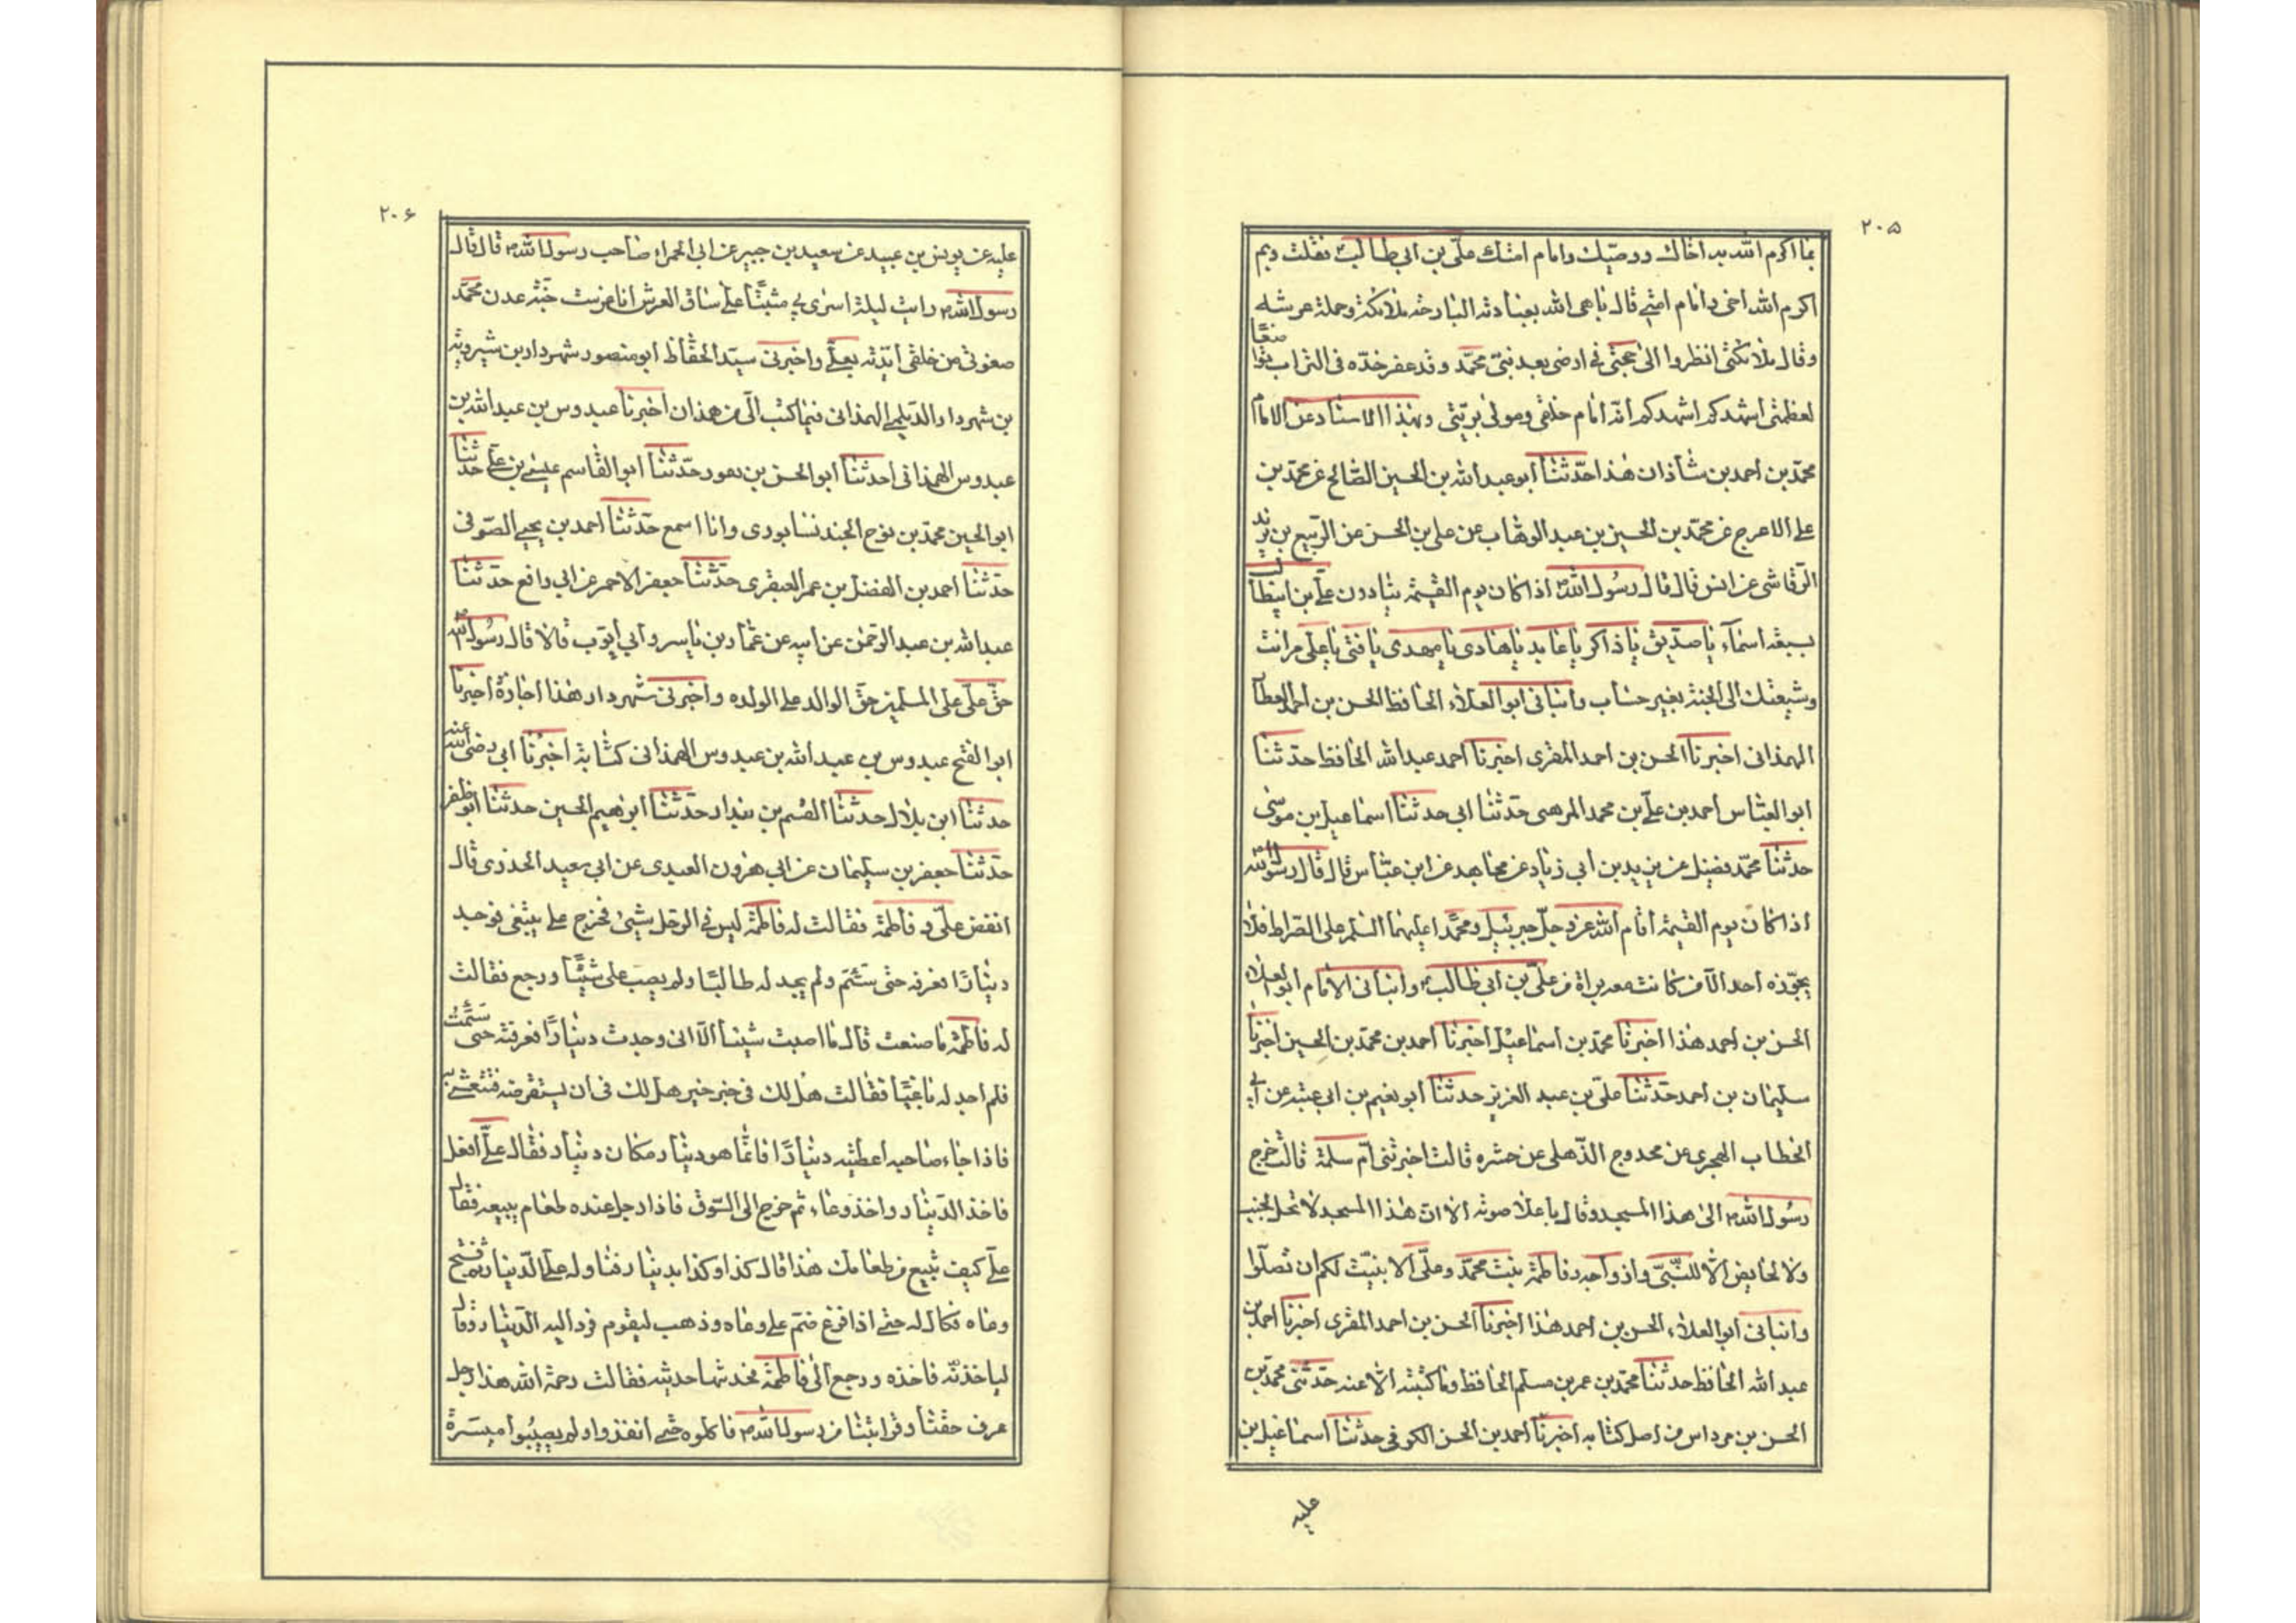 ٢٠٥
بما اكرم الله به اخاك ووصيّك وامام امتك علىّ بن ابى طالب فقلت وبم
اكرم الله اخى وامام امتى قال باهى الله بعبادته البارحة ملائكته وحملة عرشه
وقال ملائكتى انظروا الى حجتى فى ارضى بعد نبيّى محمّد وقد عفر خدّه فى التراب تواضعًا
لعظمتى اشهدكم اشهدكم انّه امام خلقى ومولى بريّتى وبهذا الاسناد عن الامام
محمّد بن احمد بن شاذان هذا حدّثنا ابو عبد الله بن الحسين الصّالح عن محمّد بن
على الاعرج عن محمّد بن الحسين بن عبد الوهّاب عن على بن الحسن عن الرّبيع بن يزيد
الرّقاشى عن انس قال قال رسول الله اذا كان يوم القيمة ينادون علىّ بن ابيطالب
بسبعة اسمآء يا صدّيق يا ذاكر يا عابد يا هادى يا مهدى يا فتى يا على مر انت
وشيعتك الى الجنّة بغير حساب وانبانى ابو العلاء الحافظ الحسن بن احمد العطار
الهمذانى اخبرنا الحسن بن احمد المقرى اخبرنا احمد عبد الله الحافظ حدثنا
ابو العبّاس احمد بن علىّ بن محمد المرهبى حدّثنا ابى حدثنا اسماعيل بن موسى
حدثنا محمّد فضيل عن يزيد بن ابى زياد عن مجاهد عن ابن عبّاس قال قال رسول الله
اذا كان يوم القيمة اقام الله عزّ وجلّ جبرئيل ومحمّدا عليهما السلم على الصراط فلا
يجوّزه احد الّا من كانت معه براة من علىّ بن ابى طالب وانبانى الامام ابو العلاء
الحسن بن احمد هذا اخبرنا محمّد بن اسماعيل اخبرنا احمد بن محمّد بن الحسين اخبرنا
سليمان بن احمد حدّثنا علىّ بن عبد العزيز حدثنا ابو نعيم بن ابى عتبه عن ابى
الخطاب الهجرى عن محدوج الذّهلى عن جسره قالت اخبرتنى امّ سلمة قالت خرج
رسول الله الى هذا المسجد وقال باعلا صوته الا انّ هذا المسجد لا تحل لجنب
ولا لحايض الّا للنّبىّ وازواجه وفاطمة بنت محمّد وعلىّ الا بيّنت لكم ان تضلّوا
وانبانى ابو العلاء الحسن بن احمد هذا اخبرنا الحسن بن احمد المقرى اخبرنا احمد بن
عبد الله الحافظ حدثنا محمّد بن عمر بن مسلم الحافظ وما كتبته الّا عنه حدّثنى محمّد بن
الحسن بن مرداس من اصل كتابه اخبرنا احمد بن الحسن الكوفى حدثنا اسماعيل بن
عليه
٢٠۶
عليه عن يونس بن عبيد عن سعيد بن جبير عن ابى الحمراء صاحب رسول الله قال قال
رسول الله رايت ليلة اسرى بى مثبتًا على ساق العرش انا غرست جنّة عدن محمّد
صفوتى من خلقى ايّدته بعلىّ واخبرنى سيّد الحفّاظ ابو منصور شهردار بن شيرويه
بن شهردار الديلمى الهمذانى فيما كتب الىّ من همذان اخبرنا عبدوس بن عبد الله بن
عبدوس الهمذانى حدثنا ابو الحسن بن حدّثنا ابو القاسم عيسى بن علىّ حدثنا
ابو الحسين محمّد بن نوح الجند نسابورى وانا اسمع حدّثنا احمد بن يحيى الصّوفى
حدّثنا احمد بن الفضل بن عمر العبقرى حدّثنا جعفر الاحمر عن ابى رافع حدّثنا
عبد الله بن عبد الرّحمٰن عن ابيه عن عمّار بن ياسر وابى ايّوب قالا قال رسول الله
حقّ علىّ على المسلمين حقّ الوالد على الولده واخبرنى شهردار هذا اجازة اخبرنا
ابو الفتح عبدوس بن عبد الله بن عبدوس الهمذانى كتابة اخبرنا ابى رضى الله عنه
حدثنا ابن بلال حدثنا القسم بن بندار حدّثنا ابرهيم الحسين حدثنا ابو ظفر
حدّثنا جعفر بن سليمان عن ابى هرون العبدى عن ابى سعيد الخدرى قال
انفض علىّ و فاطمة فقالت له فاطمة ليس فى الرحل شيئ فخرج على يبتغى فوجد
دينارًا فعرفه حتى سئم ولم يجد له طالبًا ولم يصب على شيئًا ورجع فقالت
له فاطمة ما صنعت قال ما اصبت شيئا الّا انى وجدت دينارًا فعرفته حتى سئمت
فلم اجد له باغيًا فقالت هل لك فى خير هل لك فى ان يستقرضه فتعشى به
فاذا جاء صاحبه اعطيته دينارًا فانّما هو دينار مكان دينار فقال علىّ افعل
فاخذ الدّينار واخذ وعاء ثم خرج الى السّوق فاذا رجل عنده طعام يبيعه فقال
علىّ كيف تبيع من طعامك هذا قال كذا وكذا بدينار فناوله على الدّينار ففتح
وعاه فكال له حتى اذا فرغ ضمّ على وعاه وذهب ليقوم فردّ اليه الدّينار وقال
لياخذنّه فاخذه ورجع الى فاطمة فحدثها حديثه فقالت رحمة الله هذا رجل
عرف حقّنا وقرابتنا من رسول الله فاكلوه حتى انفذوا ولم يصيبوا ميسرة